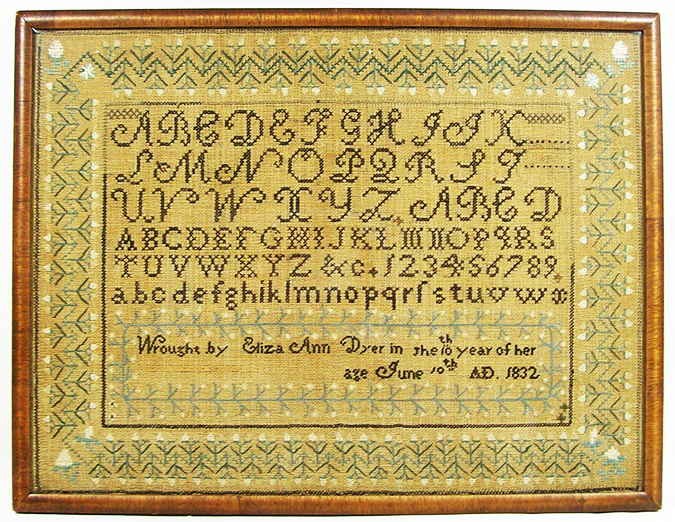 A B C D E F G H I J K
L M N O P Q R S T
U V W X Y Z A B C D
A B C D E F G H I J K L M N O P Q R S
T U V W X Y Z &c. 1 2 3 4 5 6 7 8 9
a b c d e f g h i k l m n o p q r ſ s t u v w x
Wrought by Eliza Ann Dyer in The 10th year of her
age June 10th AD. 1832